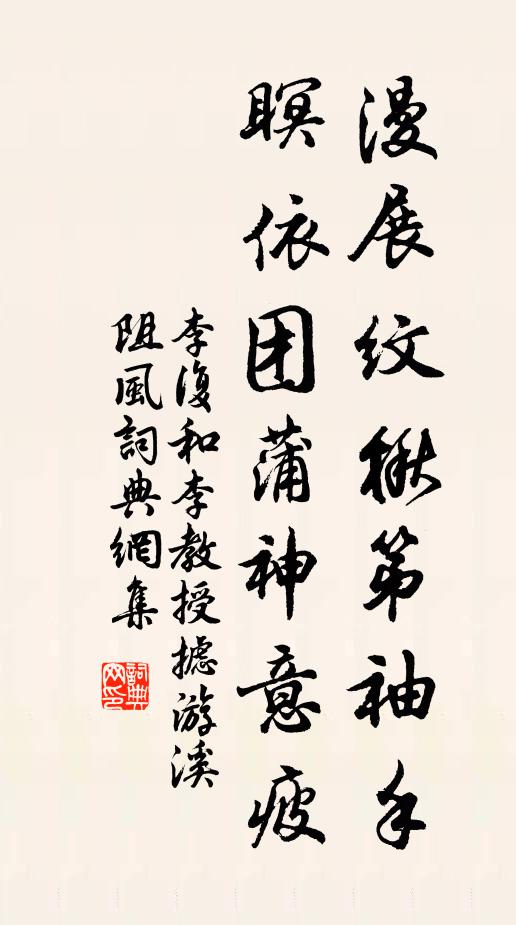 漫展纹楸第袖手
瞑依团蒲神意疲
李復和李教授摅游溪
阻風詞典網集
詞典網印